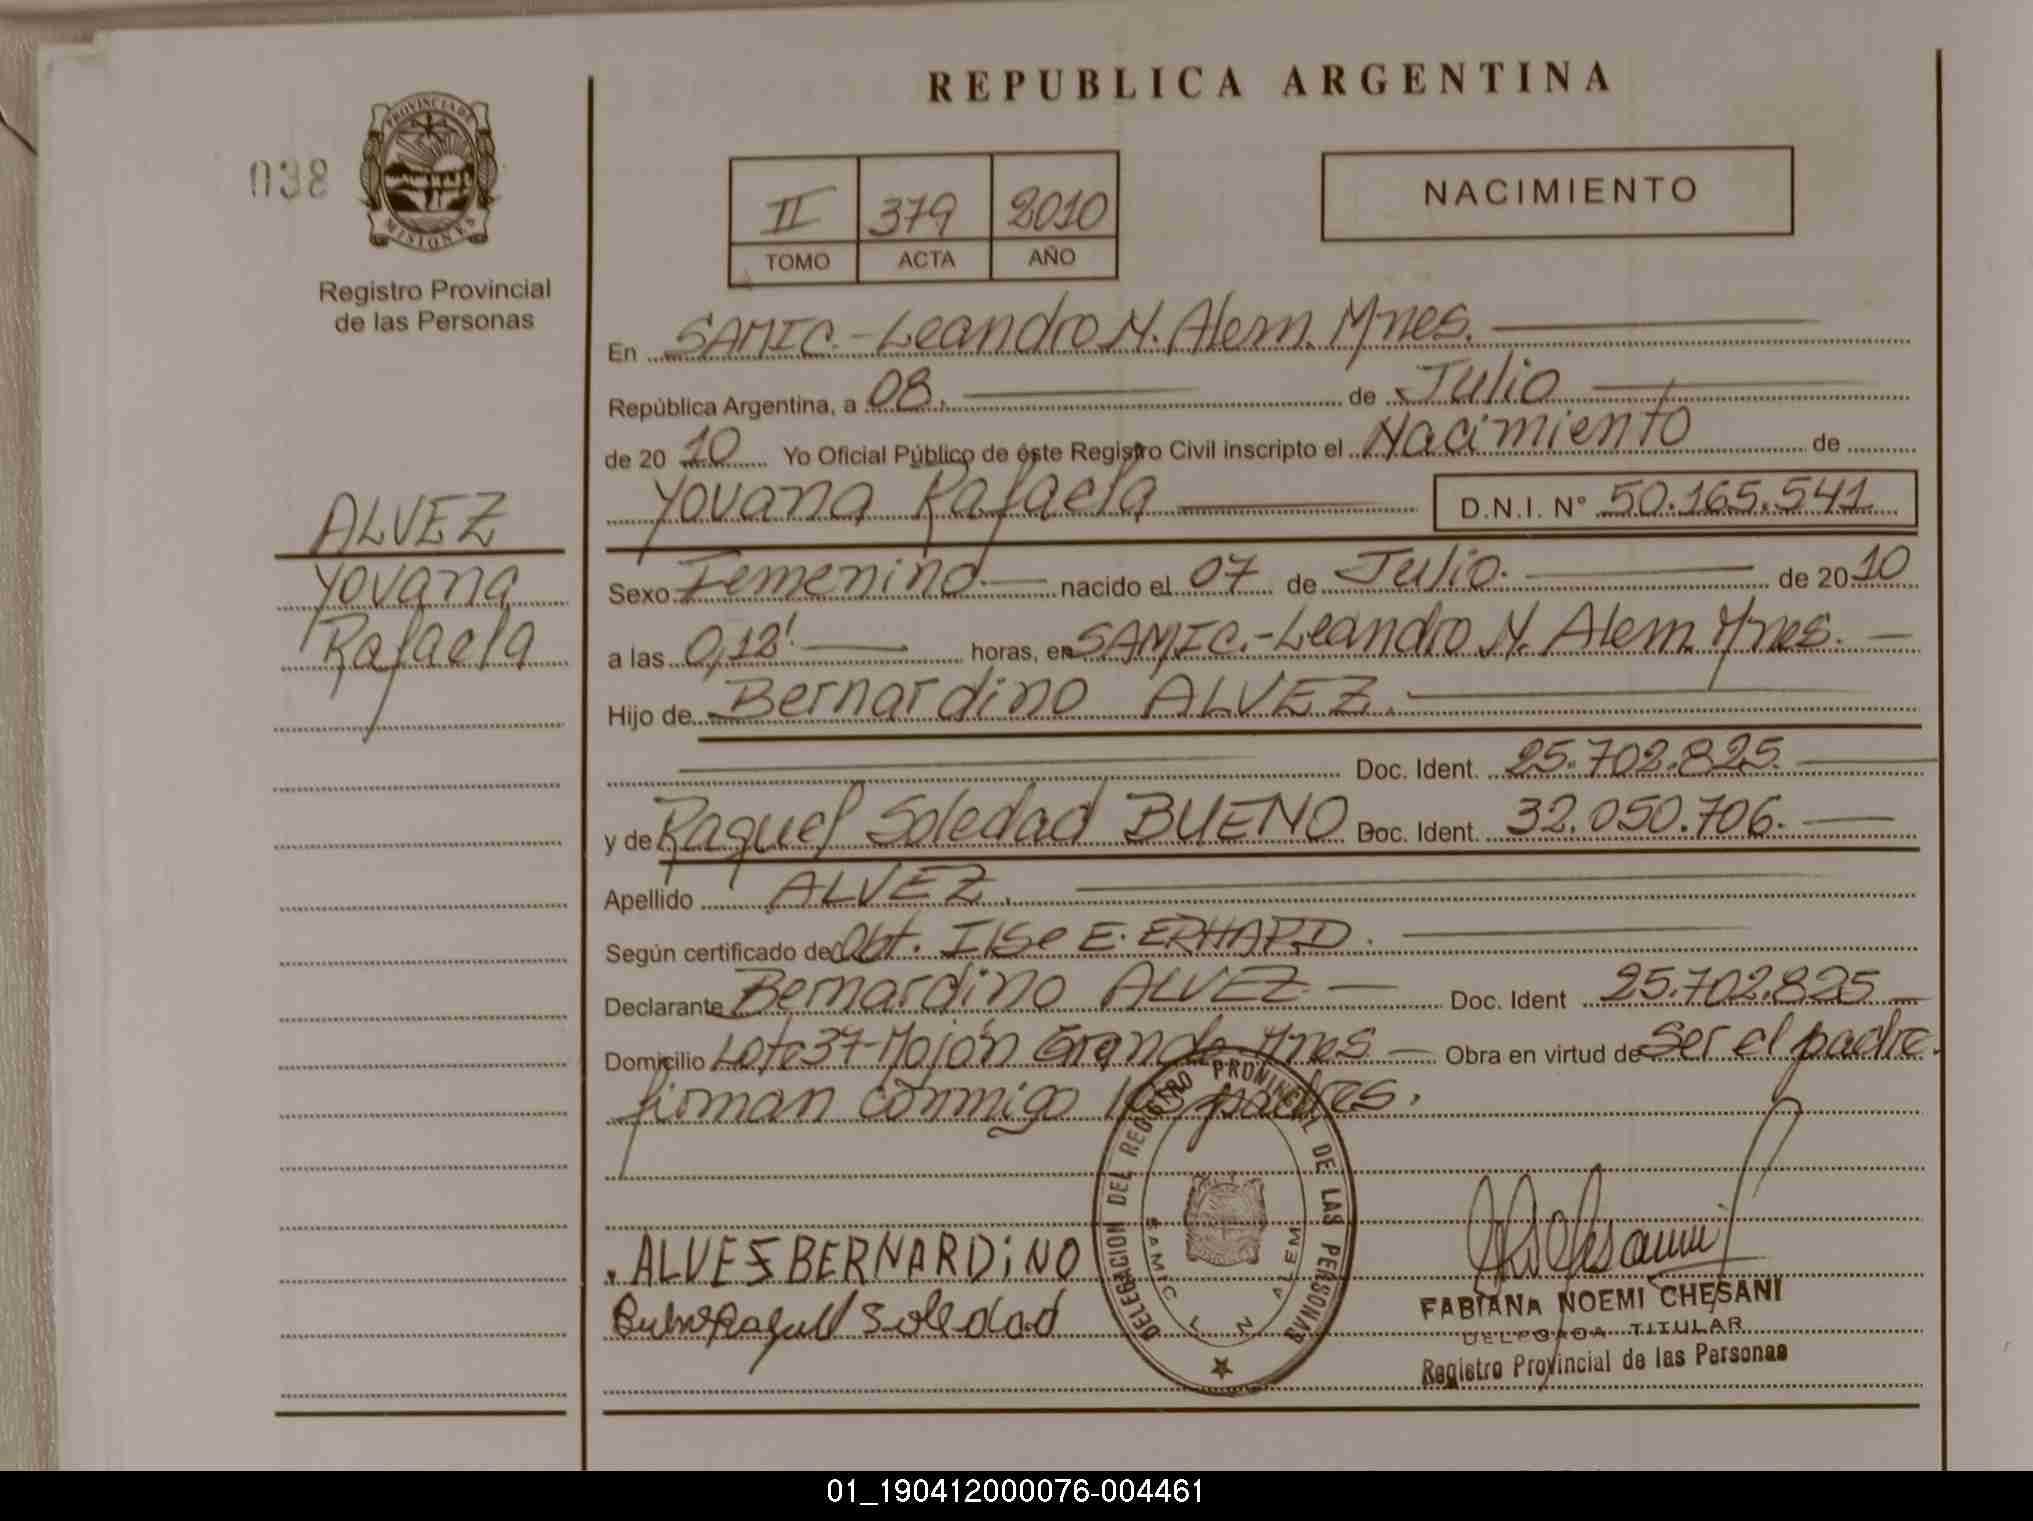 REPUBLICA ARGENTINA
038
PROVINCIA DE
MISIONES
Registro Provincial
de las Personas
II 379 2010
TOMO ACTA AÑO
NACIMIENTO
En SAMIC.-Leandro N. Alem. Mnes.
República Argentina, a 08. de Julio
de 20 10 Yo Oficial Público de éste Registro Civil inscripto el Nacimiento de
Yovana Rafaela D.N.I. N° 50.165.541
ALVEZ
Yovana
Rafaela
Sexo Femenino nacido el 07 de Julio. de 20 10
a las 0,12' horas, en SAMIC.-Leandro N. Alem Mnes.
Hijo de Bernardino ALVEZ.
Doc. Ident. 25.702.825.
y de Raquel Soledad BUENO Doc. Ident. 32.050.706.
Apellido ALVEZ.
Según certificado de Obt. Ilse E. ERHARD.
Declarante Bernardino ALVEZ Doc. Ident 25.702.825
Domicilio Lote 37-Mojón Grande Mnes Obra en virtud de ser el padre.
firman conmigo los padres.
DELEGACION DEL REGISTRO PROVINCIAL DE LAS PERSONAS
SAMIC L N ALEM
ALVEZ BERNARDiNO
Raquel Soledad
FABIANA NOEMI CHESANI
DELEGADA TITULAR
Registro Provincial de las Personas
01_190412000076-004461